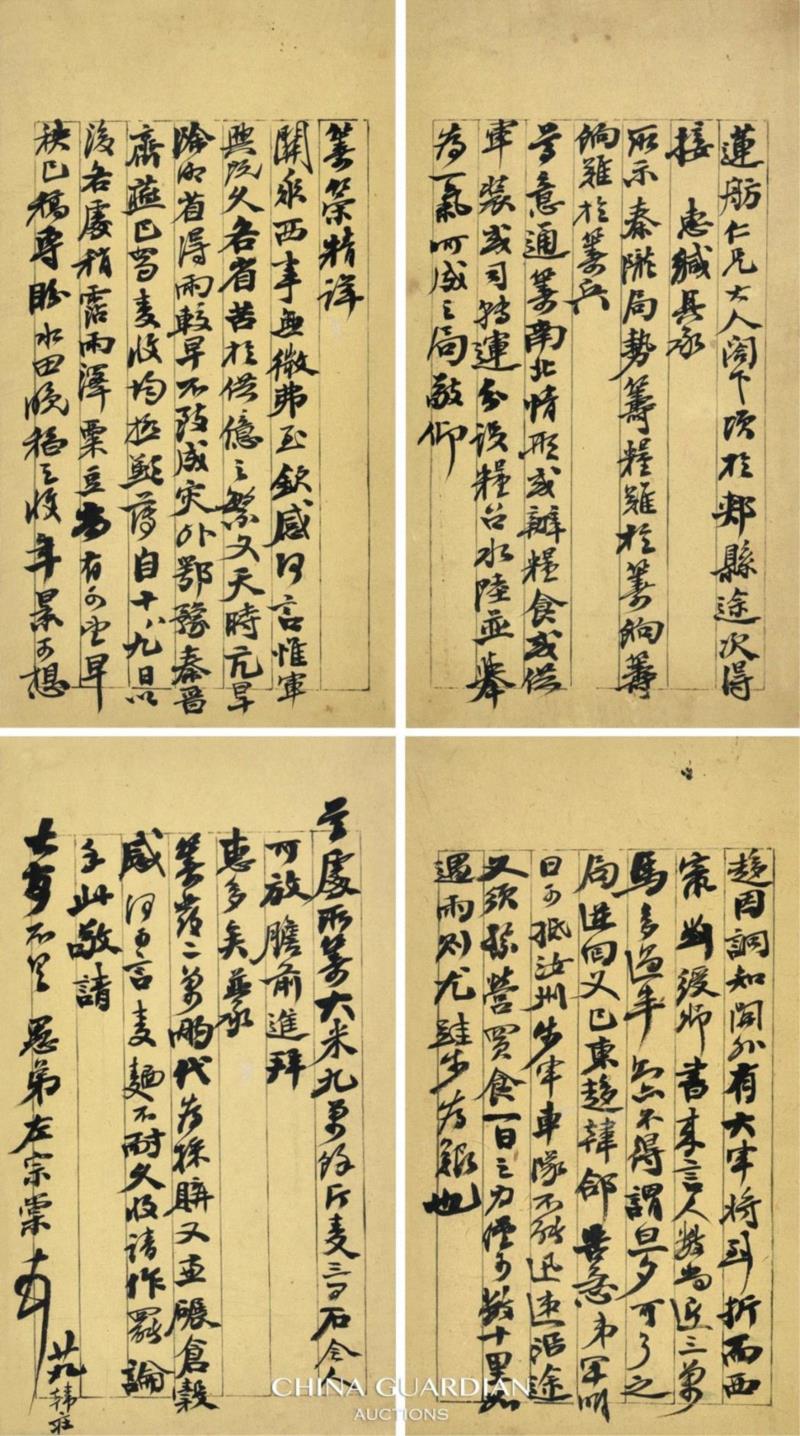 蓮舫仁兄大人閣下頃於郟縣途次得
接 惠緘具承
所示秦隴局勢籌糧難於籌餉籌
餉難於籌兵
尊意通籌南北情形或辦糧食或供
軍裝或司轉運分設糧台水陸並舉
為一氣可成之局敬仰
籌策精詳
關承西事無微弗至欽感何言惟軍
興既久各省苦於供億之繁又天時亢旱
除湘省得雨較早不致成灾外鄂豫秦晉
齊燕巳蜀麥收均極歉薄自十八九日以
後各處稍霑雨澤粟豆尚有可望早
秧已槁專盼水田晚稻之收年景可想
趨因詗知關外有大軍將到折而西
竄 緩師書來言人數尚近三萬
馬多過半亦不得謂旦夕可了之
局逆回又已東趨韓郃告急弟軍明
日可抵汝州步軍車隊不能迅速沿途
又須紮營買食一日之力僅可數十里如
遇雨則尤跬步為艱也
尊處所籌大米九萬餘斤麥三百石令人
可放膽前進拜
惠多矣並承
籌貲二萬兩代為採購又查碾倉穀
感何可言麥麵不耐久收請作罷論
手此敬請
大安不具 愚弟左宗棠
CHINA GUARDIAN
AUCTIONS